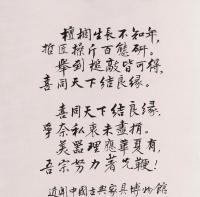 檀櫚生長不知年，
哲匠操斤百態研。
舉到槌敲皆可得，
喜同天下結良緣。
喜同天下結良緣，
爭奈私衷未盡捐。
英器理應華夏有，
吾宗努力著先鞭！
近聞中國古典家具博物館